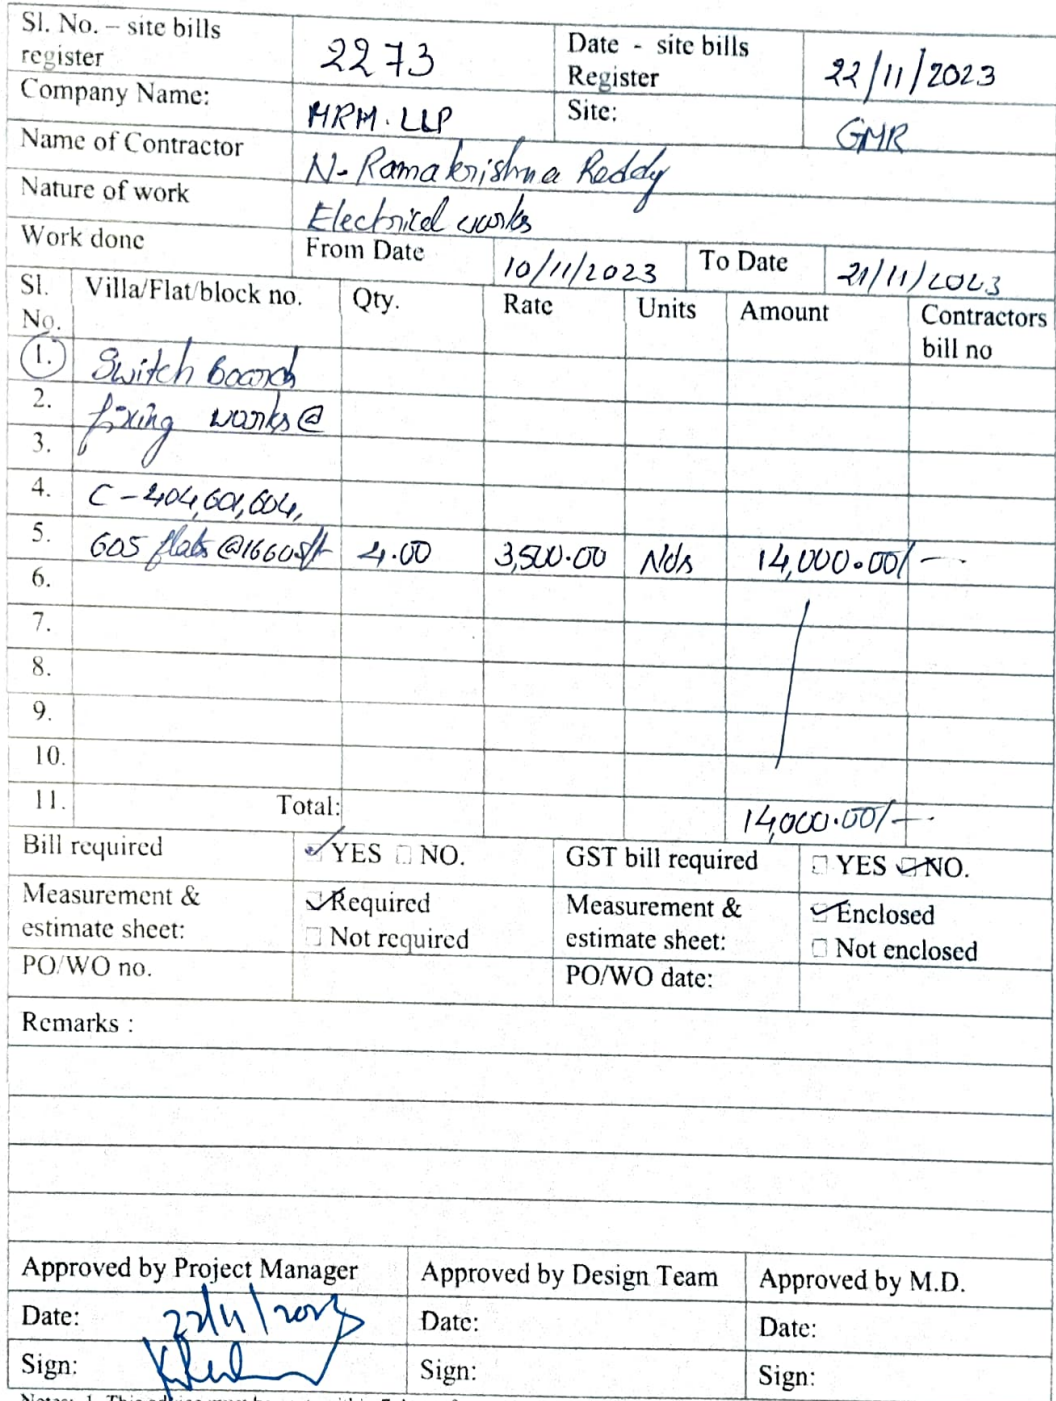 Sl. No. – site bills register 2273 Date - site bills Register 22/11/2023
Company Name: MRM. LLP Site: GMR
Name of Contractor N- Ramakrishna Reddy
Nature of work Electrical works
Work done From Date 10/11/2023 To Date 21/11/2023
Sl. No. Villa/Flat/block no. Qty. Rate Units Amount Contractors bill no
1. Switch board
2. fixing works @
3.
4. C - 404, 601, 604,
5. 605 flats @1660sft 4.00 3,500.00 Nos 14,000.00/-
6.
7.
8.
9.
10.
11. Total: 14,000.00/-
Bill required YES NO. GST bill required YES NO.
Measurement & estimate sheet: Required Not required Measurement & estimate sheet: Enclosed Not enclosed
PO/WO no. PO/WO date:
Remarks :
Approved by Project Manager Approved by Design Team Approved by M.D.
Date: 22/11/2023 Date: Date:
Sign: Sign: Sign: